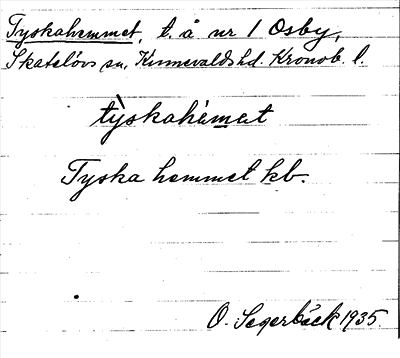 Tyskahemmet, t. å nr 1 Osby,
Skatelövs sn, Kinnevalds hd. Kronob. l.
tyskahemet
Tyska hemmet kb.
O. Segerbäck 1935.